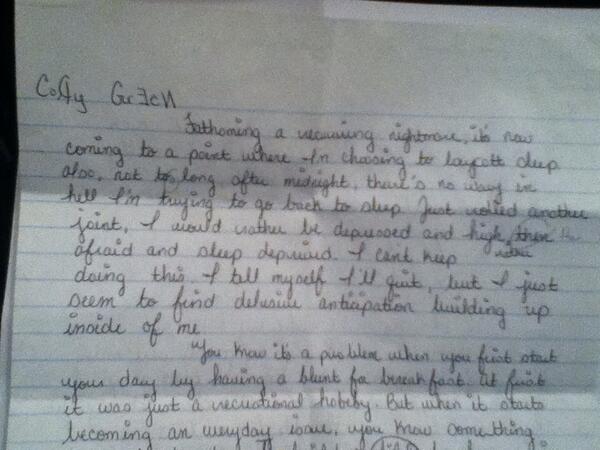 CoRy GrEcN
Fathoming a recurring nightmare, it's now
coming to a point where I'm chosing to boycott sleep
also, not too long after midnight, there's no way in
hell I'm trying to go back to sleep. Just rolled another
joint, I would rather be depressed and high, then
afraid and sleep deprived. I can't keep
doing this, I tell myself I'll quit, but I just
seem to find delusive anticipation building up
inside of me
You know it's a problem when you first start
your day by having a blunt for breakfast. At first
it was just a recreational hobby. But when it starts
becoming an everyday issue, you know something